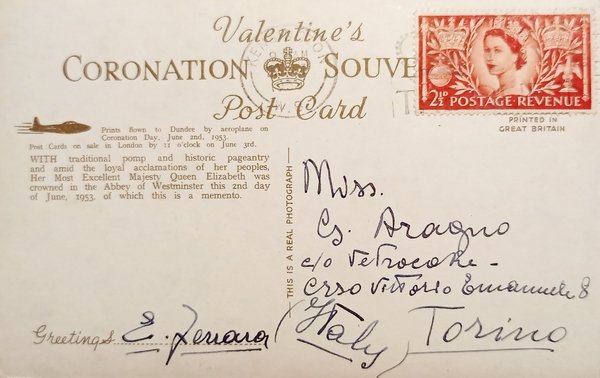 Valentine's
CORONATION SOUVE
Post Card
2½D POSTAGE REVENUE
PRINTED IN
GREAT BRITAIN
Prints flown to Dundee by aeroplane on
Coronation Day, June 2nd, 1953.
Post Cards on sale in London by 11 o'clock on June 3rd.
WITH traditional pomp and historic pageantry
and amid the loyal acclamations of her peoples,
Her Most Excellent Majesty Queen Elizabeth was
crowned in the Abbey of Westminster this 2nd day
of June, 1953, of which this is a memento.
THIS IS A REAL PHOTOGRAPH
Miss.
Cs. Aragno
c/o Vetrocoke -
Corso Vittorio Emanuele 8
(Italy) Torino
Greetings E. Ferrara